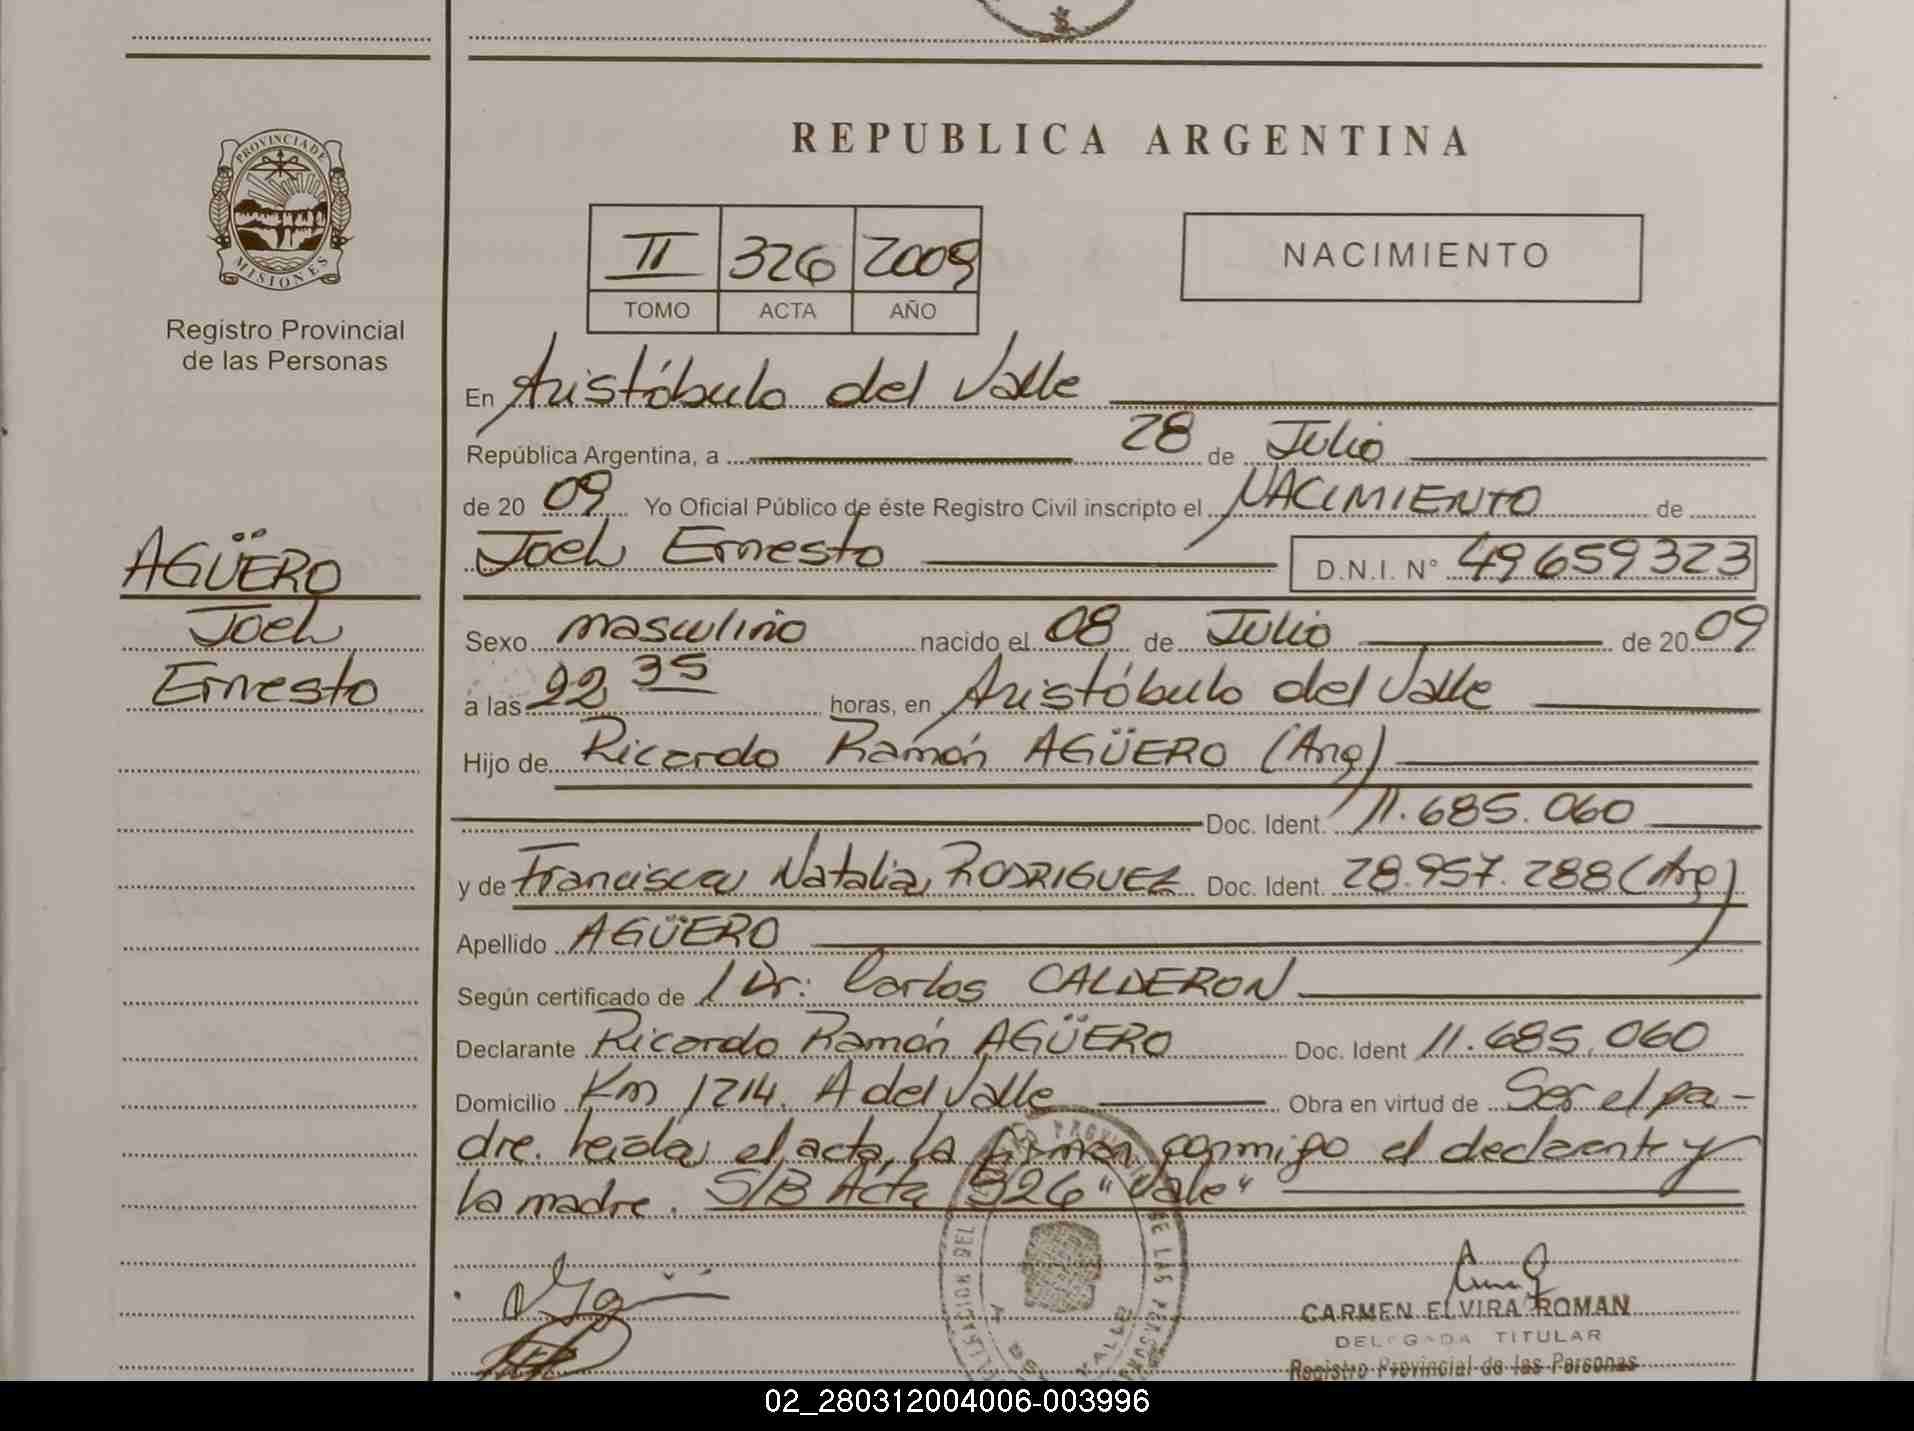 REPUBLICA ARGENTINA
PROVINCIA DE
MISIONES
Registro Provincial
de las Personas
II 326 2009
TOMO ACTA AÑO
NACIMIENTO
En Aristóbulo del Valle
República Argentina, a 28 de Julio
de 2009 Yo Oficial Público de éste Registro Civil inscripto el NACIMIENTO de
Joel Ernesto D.N.I. N° 49659323
AGÜERO
Joel
Ernesto
Sexo masculino nacido el 08 de Julio de 2009
a las 22 35 horas, en Aristóbulo del Valle
Hijo de Ricardo Ramón AGÜERO (Arg)
Doc. Ident. 11.685.060
y de Francisca Natalia RODRIGUEZ Doc. Ident. 28.957.288 (Arg)
Apellido AGÜERO
Según certificado de / Dr: Carlos CALDERON
Declarante Ricardo Ramón AGÜERO Doc. Ident 11.685.060
Domicilio Km 1214. A del Valle Obra en virtud de Ser el pa-
dre. Leída el acta, la firman conmigo el declarante y
la madre. S/B Acta 326 "Vale"
CARMEN ELVIRA ROMAN
DELEGADA TITULAR
Registro Provincial de las Personas
02_280312004006-003996